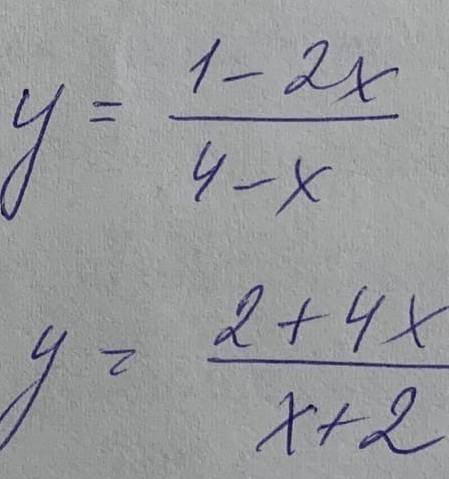 y = \frac{1 - 2x}{4 - x}
y = \frac{2 + 4x}{x + 2}